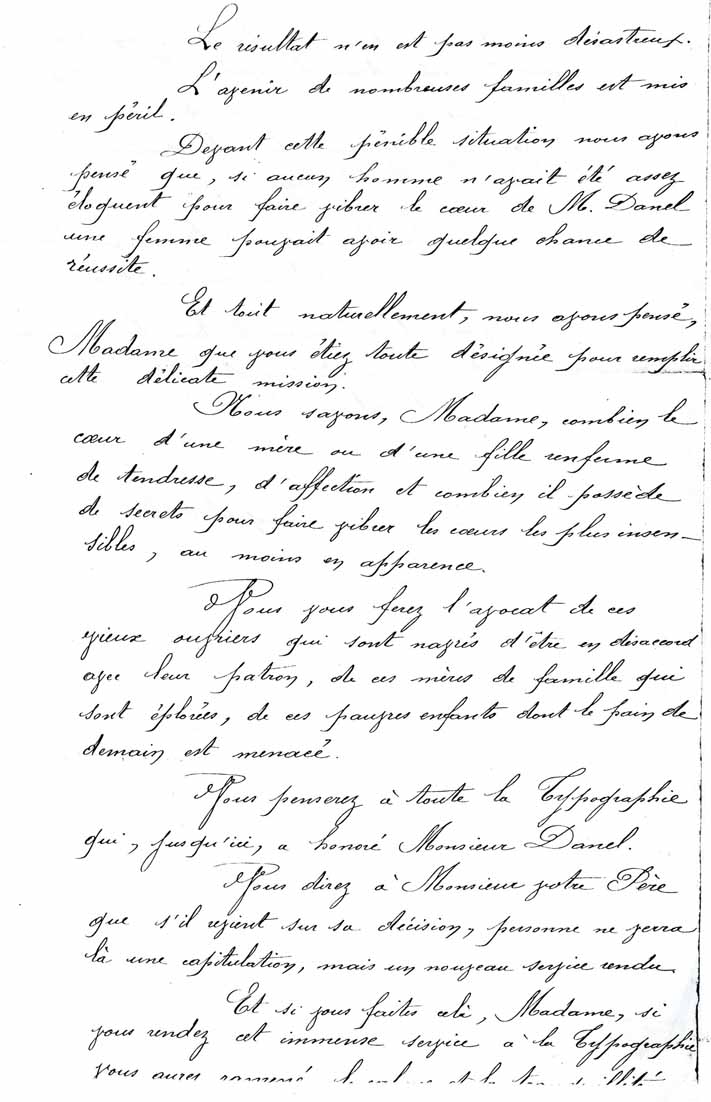 Le résultat n'en est pas moins désastreux.
L'avenir de nombreuses familles est mis
en péril.
Devant cette pénible situation nous avons
pensé que, si aucun homme n'avait été assez
éloquent pour faire vibrer le cœur de M. Danel
une femme pouvait avoir quelque chance de
réussite.
Et tout naturellement, nous avons pensé,
Madame que vous étiez toute désignée pour remplir
cette délicate mission.
Nous savons, Madame, combien le
cœur d'une mère ou d'une fille renferme
de tendresse, d'affection et combien il possède
de secrets pour faire vibrer les cœurs les plus insen-
sibles, au moins en apparence.
Vous vous ferez l'avocat de ces
vieux ouvriers qui sont navrés d'être en désaccord
avec leur patron, de ces mères de famille qui
sont éplorées, de ces pauvres enfants dont le pain de
demain est menacé.
Vous penserez à toute la Typographie
qui, jusqu'ici, a honoré Monsieur Danel.
Vous direz à Monsieur votre Père
que s'il revient sur sa décision, personne ne verra
là une capitulation, mais un nouveau service rendu.
Et si vous faites celà, Madame, si
vous rendez cet immense service à la Typographie
vous aurez ramené le calme et la tranquillité